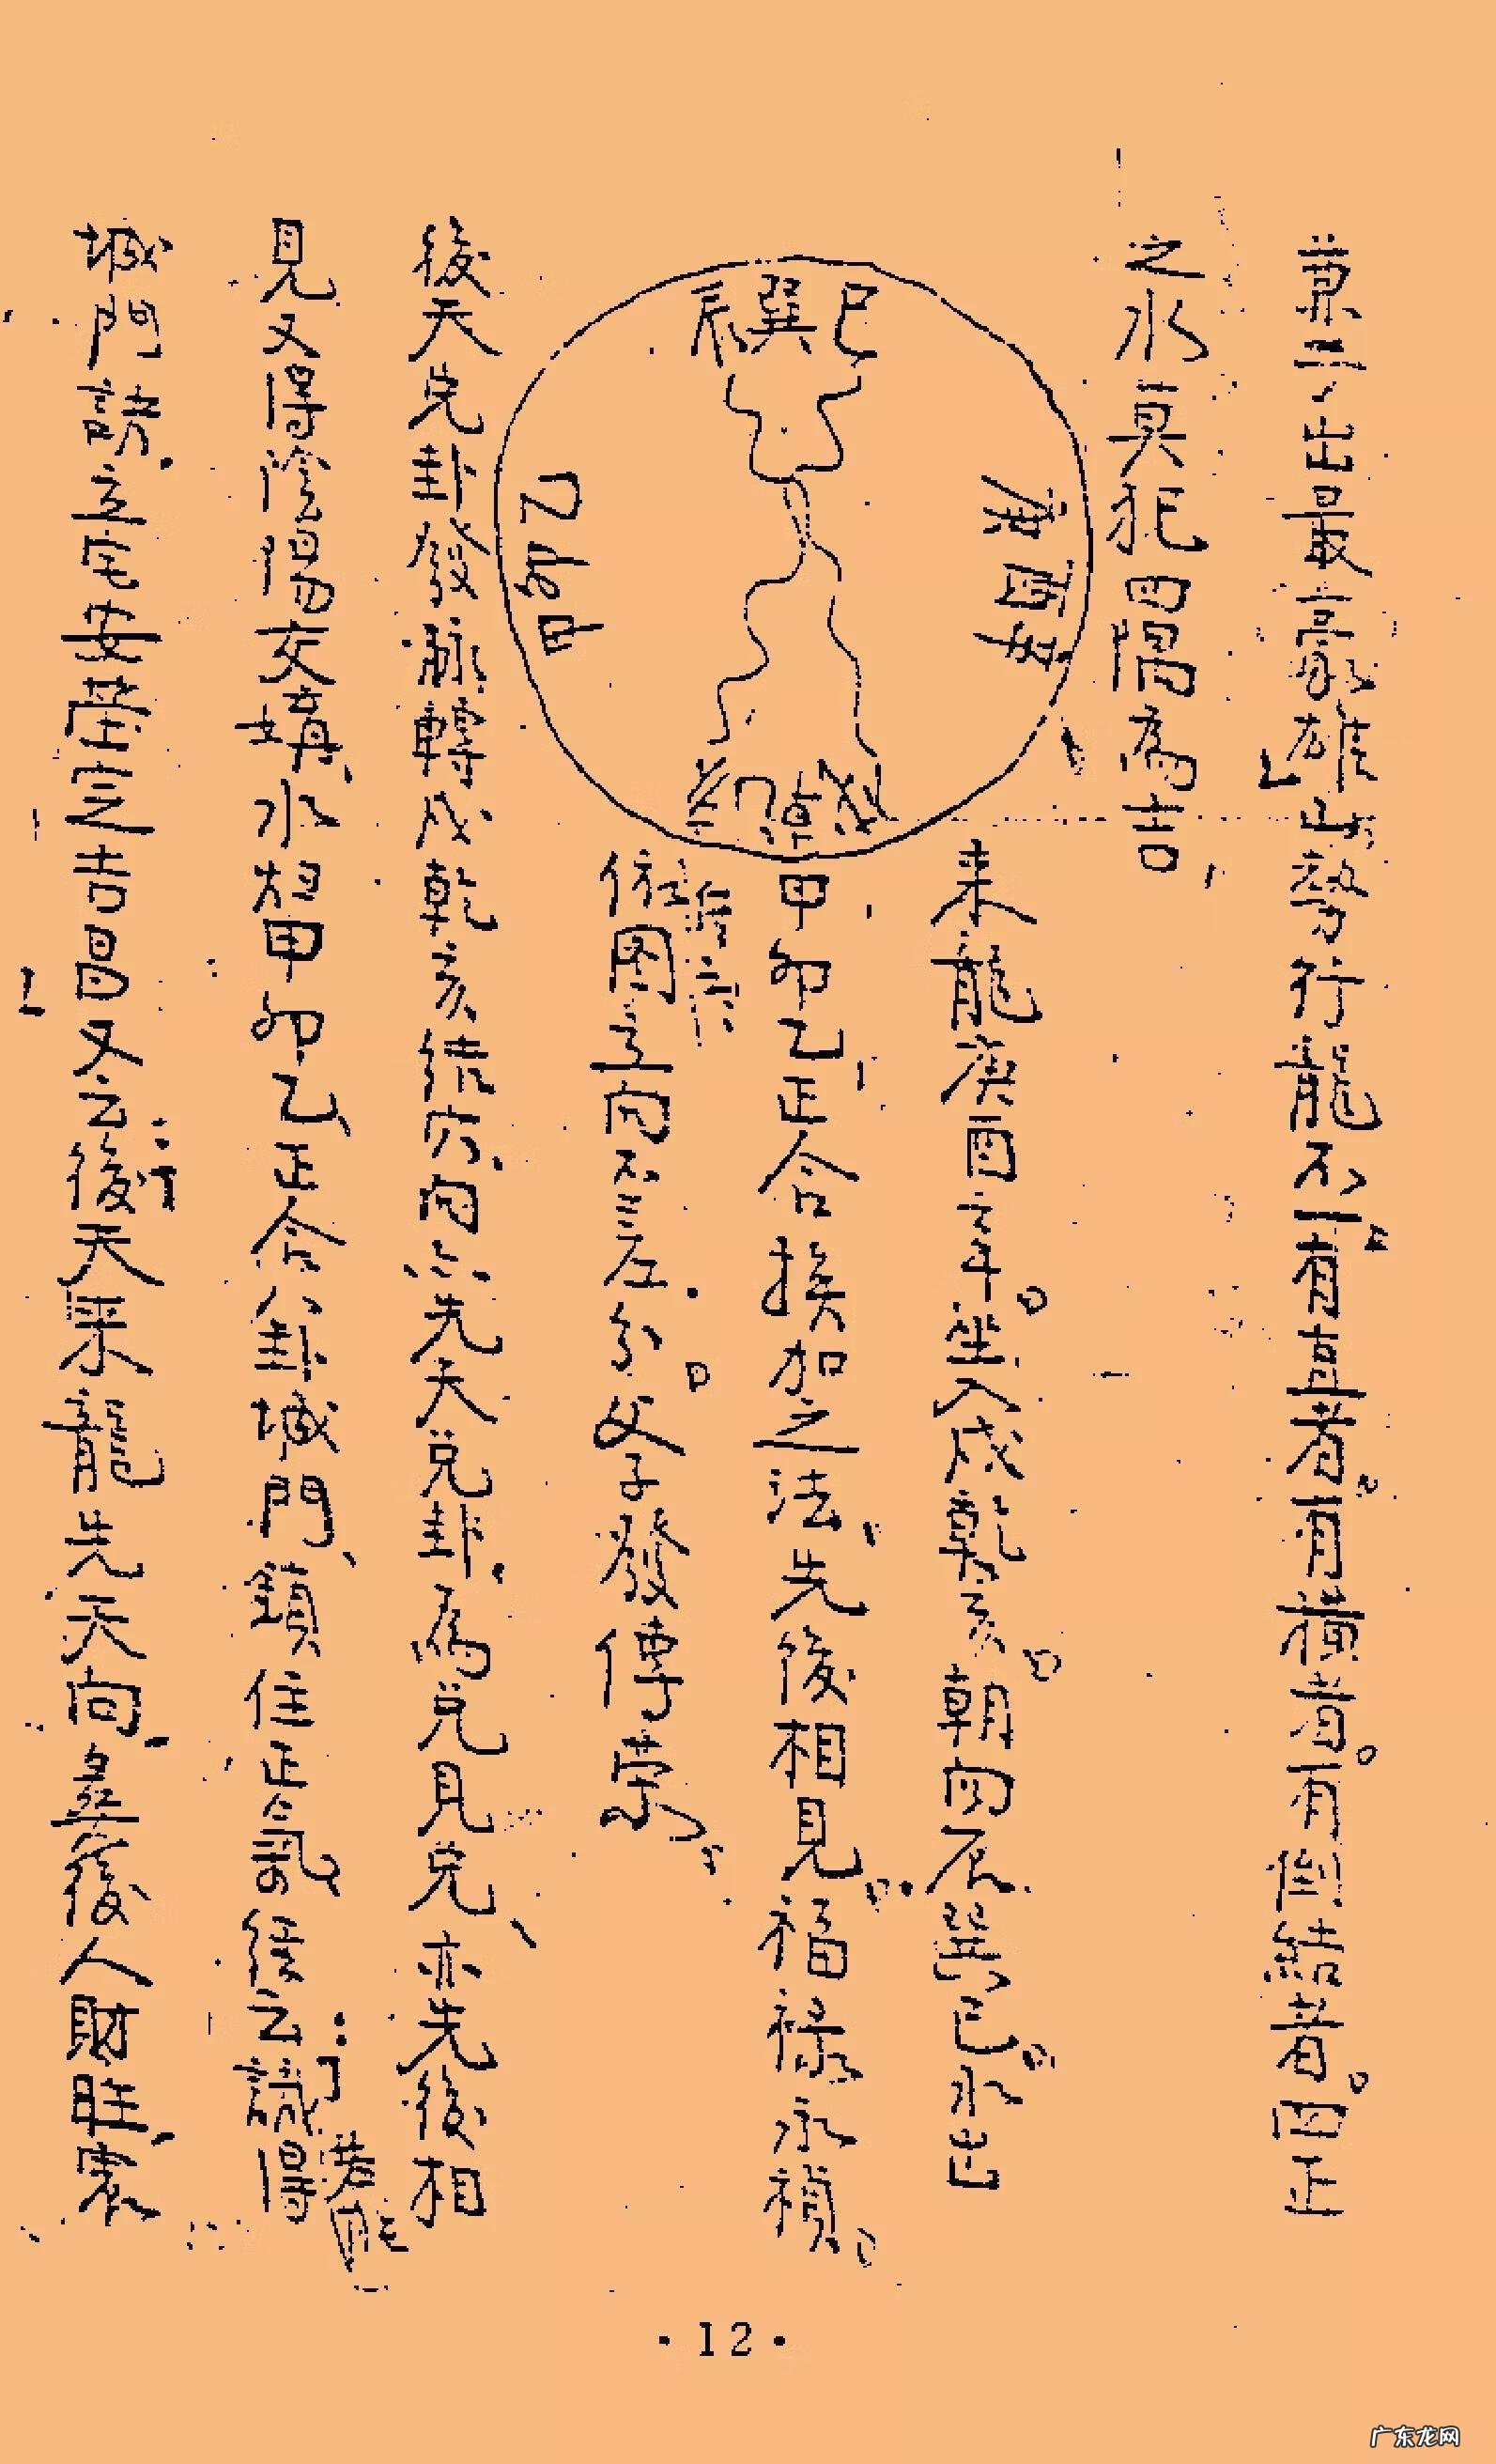 出最豪雄山勢行龍不一有直者有橫者有倒結者四正
之水真犯四隅為吉
辰巽巳
乙卯甲
庚酉辛
乾戌
来龍庚酉辛坐入戌乾亥朝向辰巽巳水出
甲卯乙正合挨加之法先後相見福禄永禎
依圖立向不三左分父子發傳荣
後天兑卦發脈轉戌乾亥结穴向亦先天兑卦為兑見兑亦先後相
見又得陰陽交媾水相甲卯乙正合八卦城門鎖住正氣後云識得
若能
城門訣立宅安塋定吉昌又云後天来龍先天向後人財旺衰
·12·
广东龙网